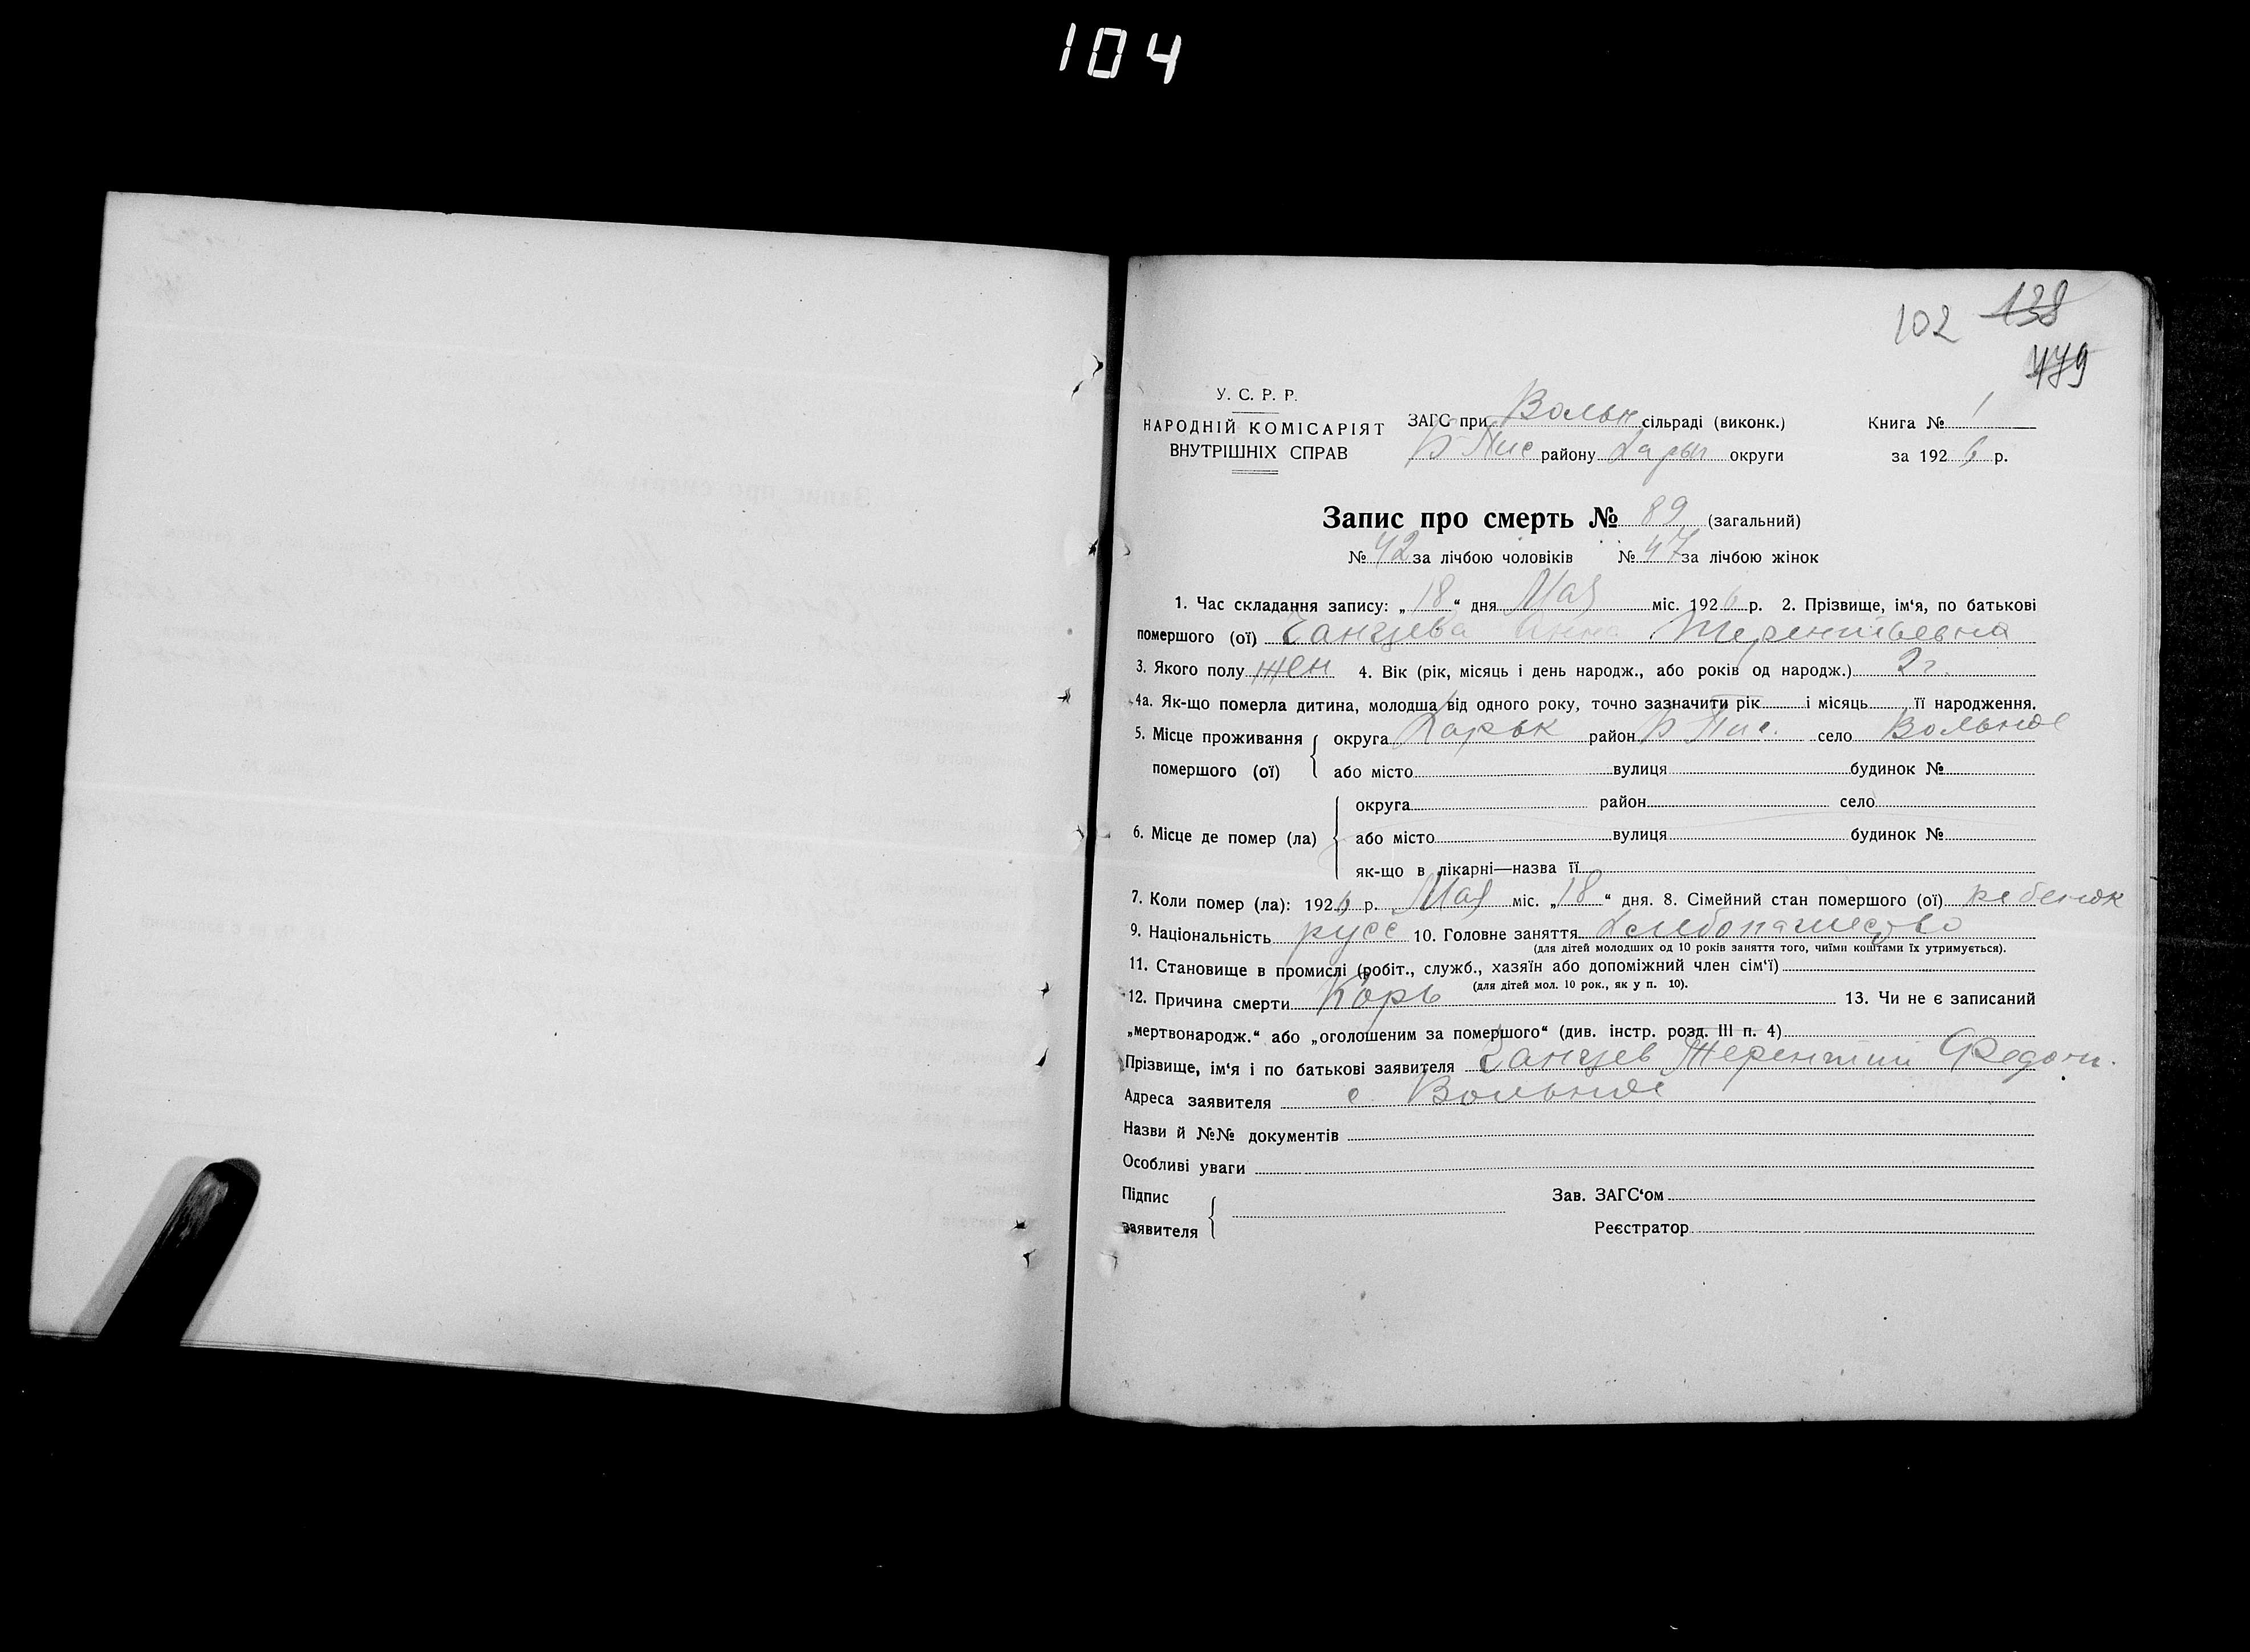 104
102 138
479
У. С. Р. Р.
НАРОДНІЙ КОМІСАРІЯТ
ВНУТРІШНІХ СПРАВ
ЗАГС при Вольн сільраді (виконк.)
Б Пис району Харьк округи
Книга № 1
за 1926 р.
Запис про смерть № 89 (загальний)
№ 42 за лічбою чоловіків № 47 за лічбою жінок
1. Час складання запису: „18“ дня Мая міс. 1926 р. 2. Прізвище, ім‘я, по батькові
помершого (ої) Ханцева Анна Терентьевна
3. Якого полу жен 4. Вік (рік, місяць і день народж., або років од народж.) 2 г.
4а. Як-що померла дитина, молодша від одного року, точно зазначити рік і місяць її народження.
5. Місце проживання помершого (ої) { округа Харьк район Б Пис. село Вольное
або місто вулиця будинок №
6. Місце де помер (ла) { округа район село
або місто вулиця будинок №
як-що в лікарні—назва її
7. Коли помер (ла): 1926 р. Мая міс. „18“ дня. 8. Сімейний стан помершого (ої) ребенок
9. Національність русс 10. Головне заняття Хлебопашество
(для дітей молодших од 10 років заняття того, чиїми коштами їх утримується).
11. Становище в промислі (робіт., служб., хазяїн або допоміжний член сім‘ї)
(для дітей мол. 10 рок., як у п. 10).
12. Причина смерти Корь 13. Чи не є записаний
„мертвонародж.“ або „оголошеним за помершого“ (див. інстр. розд. III п. 4)
Прізвище, ім‘я і по батькові заявителя Ханцев Терентий Федоти.
Адреса заявителя с Вольное
Назви й №№ документів
Особливі уваги
Підпис заявителя {
Зав. ЗАГС‘ом
Реєстратор